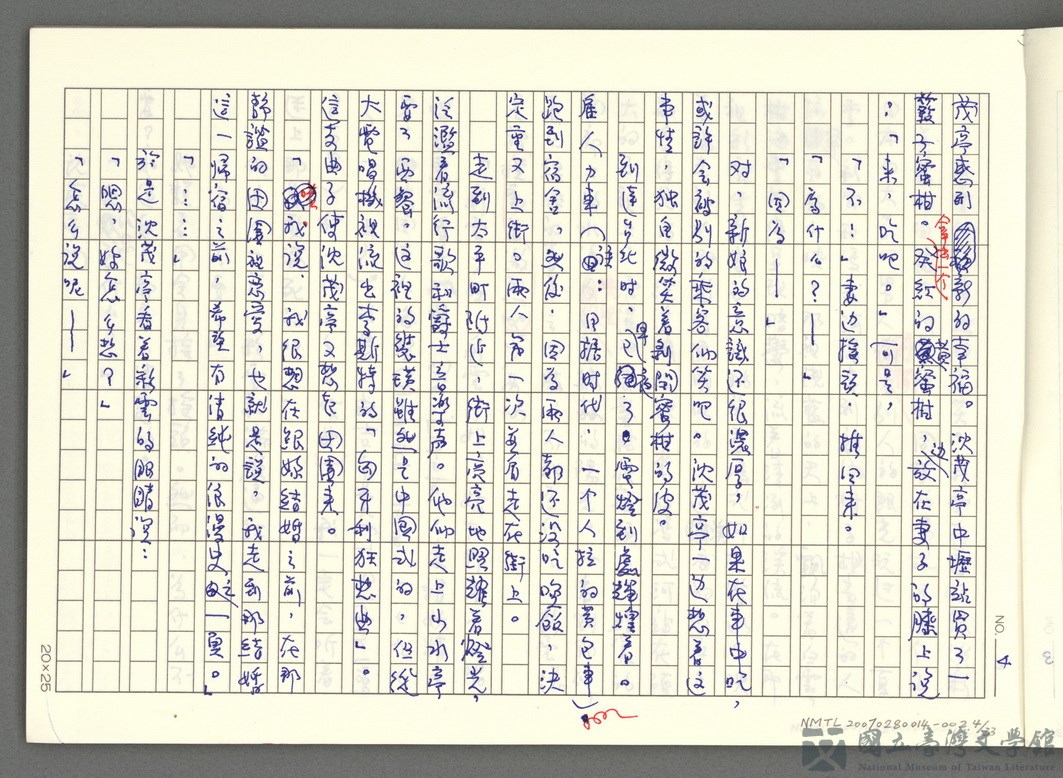 茂亭感到新的幸福。沈茂亭中壢站買了一
簍子蜜柑。拿出一个黃蜜柑,边放在妻子的膝上說
:「来,吃吧。」可是,
「不!」妻边搖頭,推回来。
「為什么?——」
「因為——」
对,新娘的意識还很濃厚,如果在車中吃,
或許会被別的乘客他们笑吧。沈茂亭一边想着这
事情,独自微笑着剝開蜜柑的皮。
到達台北时,已是夜了。電燈到處輝煌着。
雇人力車(註:日据时代,一个人拉的黃包車)
跑到宿舍。然後,因為兩人都还沒吃晚飯,決
定重又上街。兩人第一次並肩走在街上。
走到太平町附近,街上亮亮地照耀着燈光,
泛濫着流行歌和爵士音樂声。他们走上山水亭
要了西餐。这裡的裝璜雖然是中国式的,但從
大電唱機裡流出李斯特的「匈牙利狂想曲」。
这支曲子使沈茂亭又想起田園来。
我說,我很想在跟妳結婚之前,在那
靜謐的田園裡京营,也就是說,我走到那結婚
這一歸宿之前,希望有清純的浪漫史之一頁。」
「……」
於是沈茂亭看着新雲的眼睛說:
「嗯,妳怎么想?」
「怎么說呢——」
NO. 4
20×25
NMTL 20070280014-0024/
國立臺灣文學館
National Museum of Taiwan Literature